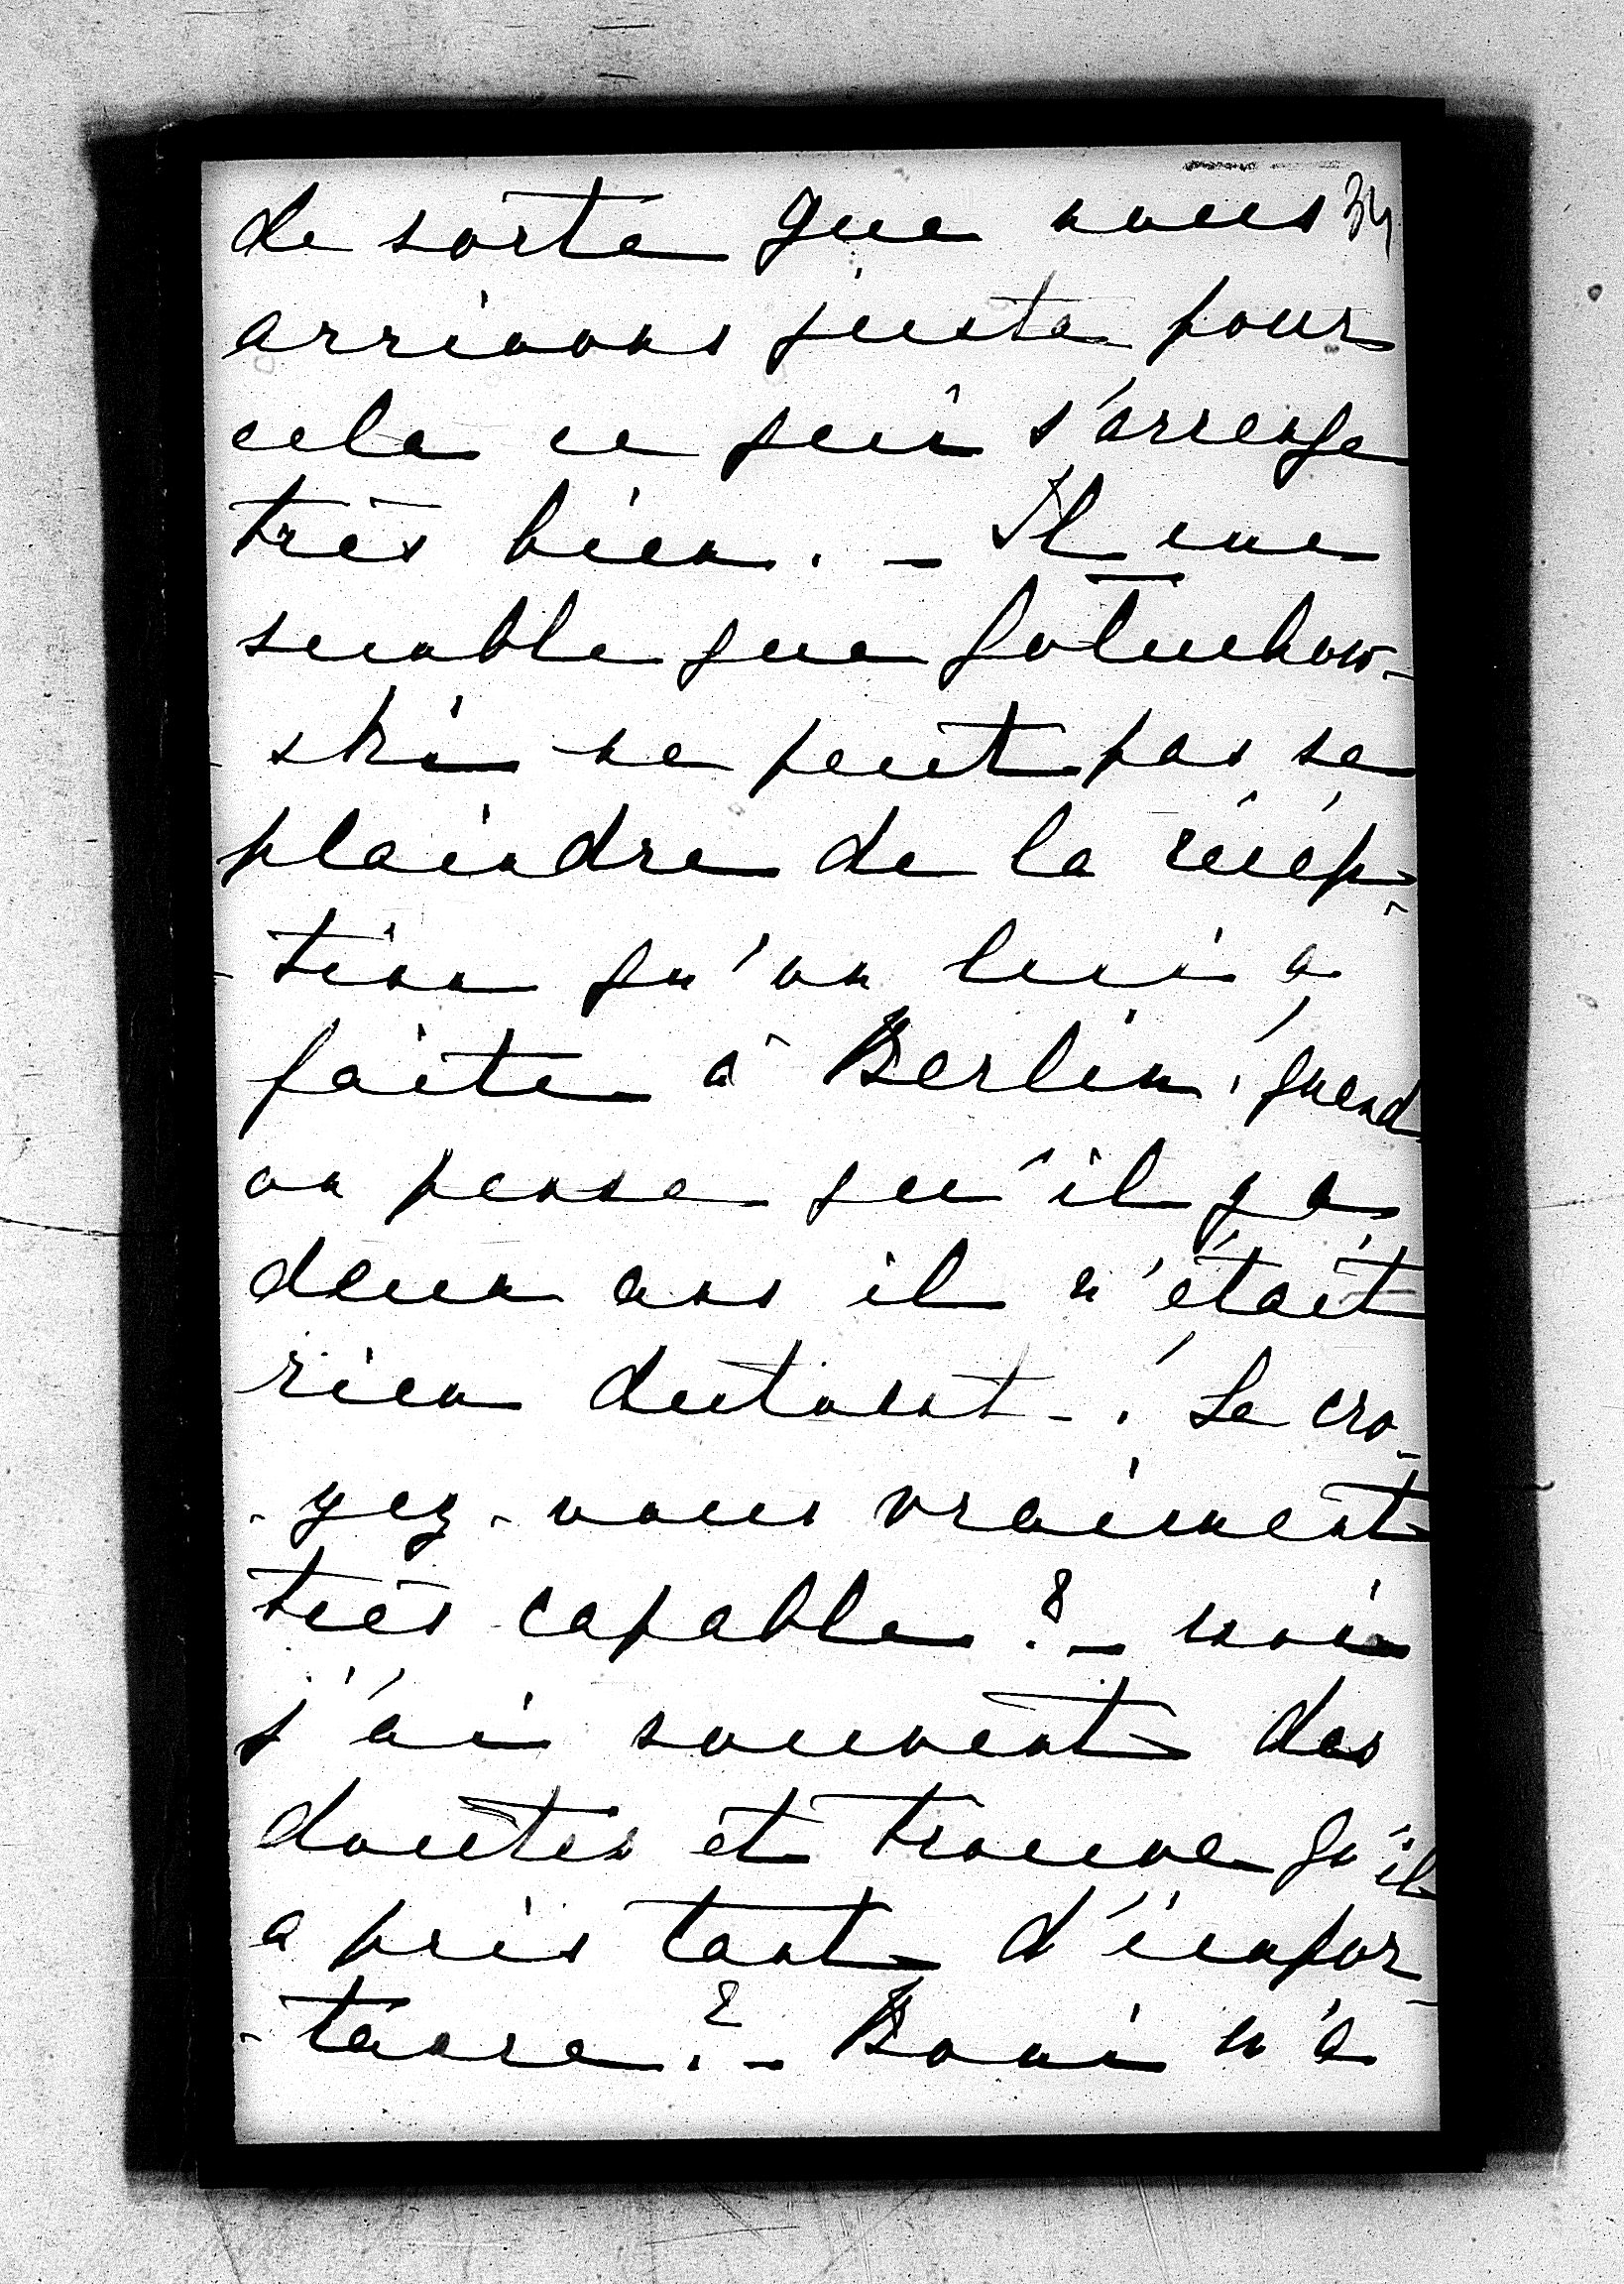 de sorte que nous 34
arrivons juste pour
cela ce qui s'arrenge
très bien. - Il me
semble que Goluchow-
- ski ne peut pas se
plaindre de la récép-
- tion qu'on lui a
faite à Berlin, quand
on pense qu'il y a
deux ans il n'était
rien dutout -. Le cro-
- yez-vous vraiment
très capable? - moi
j'ai souvent des
doutes et trouve qu'il
a pris tant d'impor-
- tance? - Bovi n'a